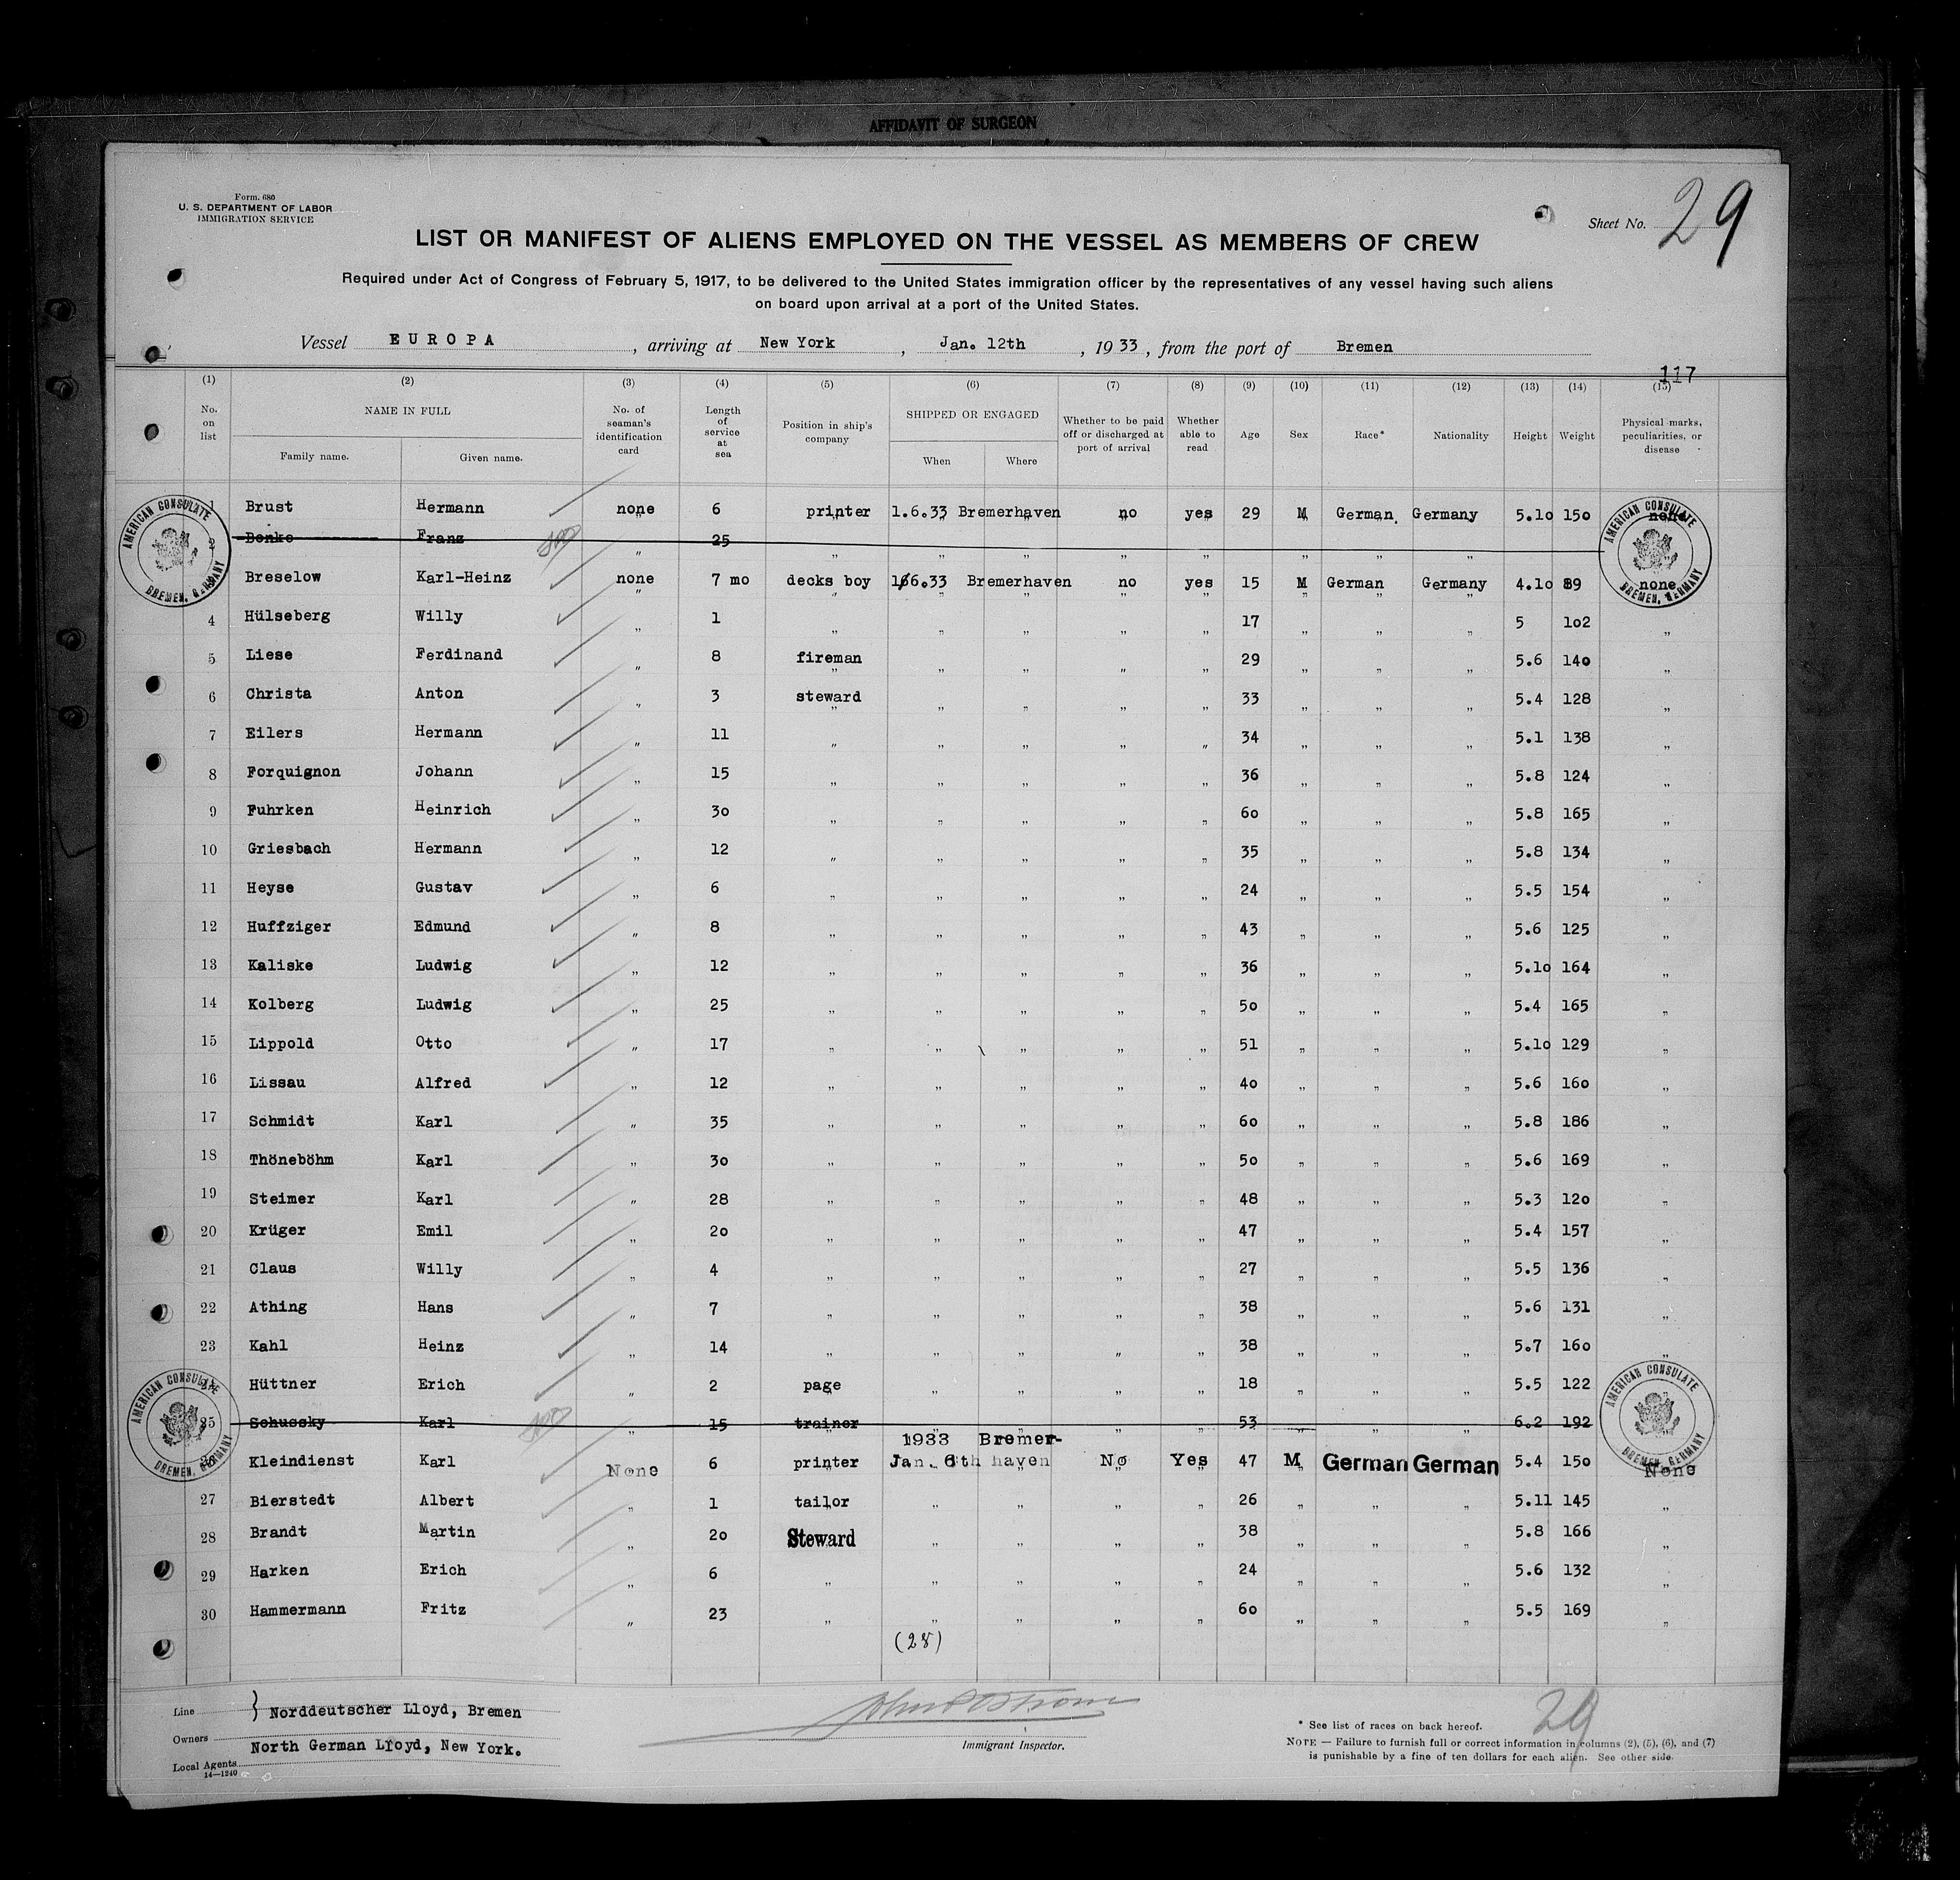 AFFIDAVIT OF SURGEON
Form. 680
U. S. DEPARTMENT OF LABOR
IMMIGRATION SERVICE
Sheet No. 29
LIST OR MANIFEST OF ALIENS EMPLOYED ON THE VESSEL AS MEMBERS OF CREW
Required under Act of Congress of February 5, 1917, to be delivered to the United States immigration officer by the representatives of any vessel having such aliens
on board upon arrival at a port of the United States.
Vessel EUROPA, arriving at New York, Jan. 12th, 1933, from the port of Bremen
117
(1) (2) (3) (4) (5) (6) (7) (8) (9) (10) (11) (12) (13) (14) (15)
No. on list NAME IN FULL Family name. Given name. No. of seaman's identification card Length of service at sea Position in ship's company SHIPPED OR ENGAGED When Where Whether to be paid off or discharged at port of arrival Whether able to read Age Sex Race* Nationality Height Weight Physical marks, peculiarities, or disease
1 Brust Hermann none 6 printer 1.6.33 Bremerhaven no yes 29 M German Germany 5.10 150 none
2 Benke Franz " 25 " " " " " " " "
Breselow Karl-Heinz none 7 mo decks boy 1.6.33 Bremerhaven no yes 15 M German Germany 4.10 89 none
4 Hülseberg Willy " 1 " " " " " 17 " " " 5 102 "
5 Liese Ferdinand " 8 fireman " " " " 29 " " " 5.6 140 "
6 Christa Anton " 3 steward " " " " 33 " " " 5.4 128 "
7 Eilers Hermann " 11 " " " " " 34 " " " 5.1 138 "
8 Forquignon Johann " 15 " " " " " 36 " " " 5.8 124 "
9 Fuhrken Heinrich " 30 " " " " " 60 " " " 5.8 165 "
10 Griesbach Hermann " 12 " " " " " 35 " " " 5.8 134 "
11 Heyse Gustav " 6 " " " " " 24 " " " 5.5 154 "
12 Huffziger Edmund " 8 " " " " " 43 " " " 5.6 125 "
13 Kaliske Ludwig " 12 " " " " " 36 " " " 5.10 164 "
14 Kolberg Ludwig " 25 " " " " " 50 " " " 5.4 165 "
15 Lippold Otto " 17 " " " " " 51 " " " 5.10 129 "
16 Lissau Alfred " 12 " " " " " 40 " " " 5.6 160 "
17 Schmidt Karl " 35 " " " " " 60 " " " 5.8 186 "
18 Thöneböhm Karl " 30 " " " " " 50 " " " 5.6 169 "
19 Steimer Karl " 28 " " " " " 48 " " " 5.3 120 "
20 Krüger Emil " 20 " " " " " 47 " " " 5.4 157 "
21 Claus Willy " 4 " " " " " 27 " " " 5.5 136 "
22 Athing Hans " 7 " " " " " 38 " " " 5.6 131 "
23 Kahl Heinz " 14 " " " " " 38 " " " 5.7 160 "
Hüttner Erich " 2 page " " " " 18 " " " 5.5 122
25 Schussky Karl " 15 trainer " " " " 53 " " " 6.2 192
Kleindienst Karl None 6 printer 1933 Jan. 6th Bremer-haven No Yes 47 M German German 5.4 150 None
27 Bierstedt Albert " 1 tailor " " " " 26 " " " 5.11 145 "
28 Brandt Martin " 20 Steward " " " " 38 " " " 5.8 166 "
29 Harken Erich " 6 " " " " " 24 " " " 5.6 132 "
30 Hammermann Fritz " 23 " " " " " 60 " " " 5.5 169 "
(28)
AMERICAN CONSULATE
BREMEN, GERMANY
AMERICAN CONSULATE
BREMEN, GERMANY
AMERICAN CONSULATE
BREMEN, GERMANY
AMERICAN CONSULATE
BREMEN, GERMANY
Line } Norddeutscher Lloyd, Bremen
Owners
Local Agents North German Lloyd, New York.
14—1240
Immigrant Inspector.
29
* See list of races on back hereof.
NOTE — Failure to furnish full or correct information in columns (2), (5), (6), and (7)
is punishable by a fine of ten dollars for each alien. See other side.